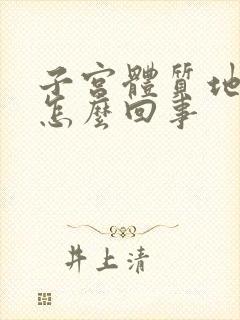 子宮體質地
怎麼回事
井上清